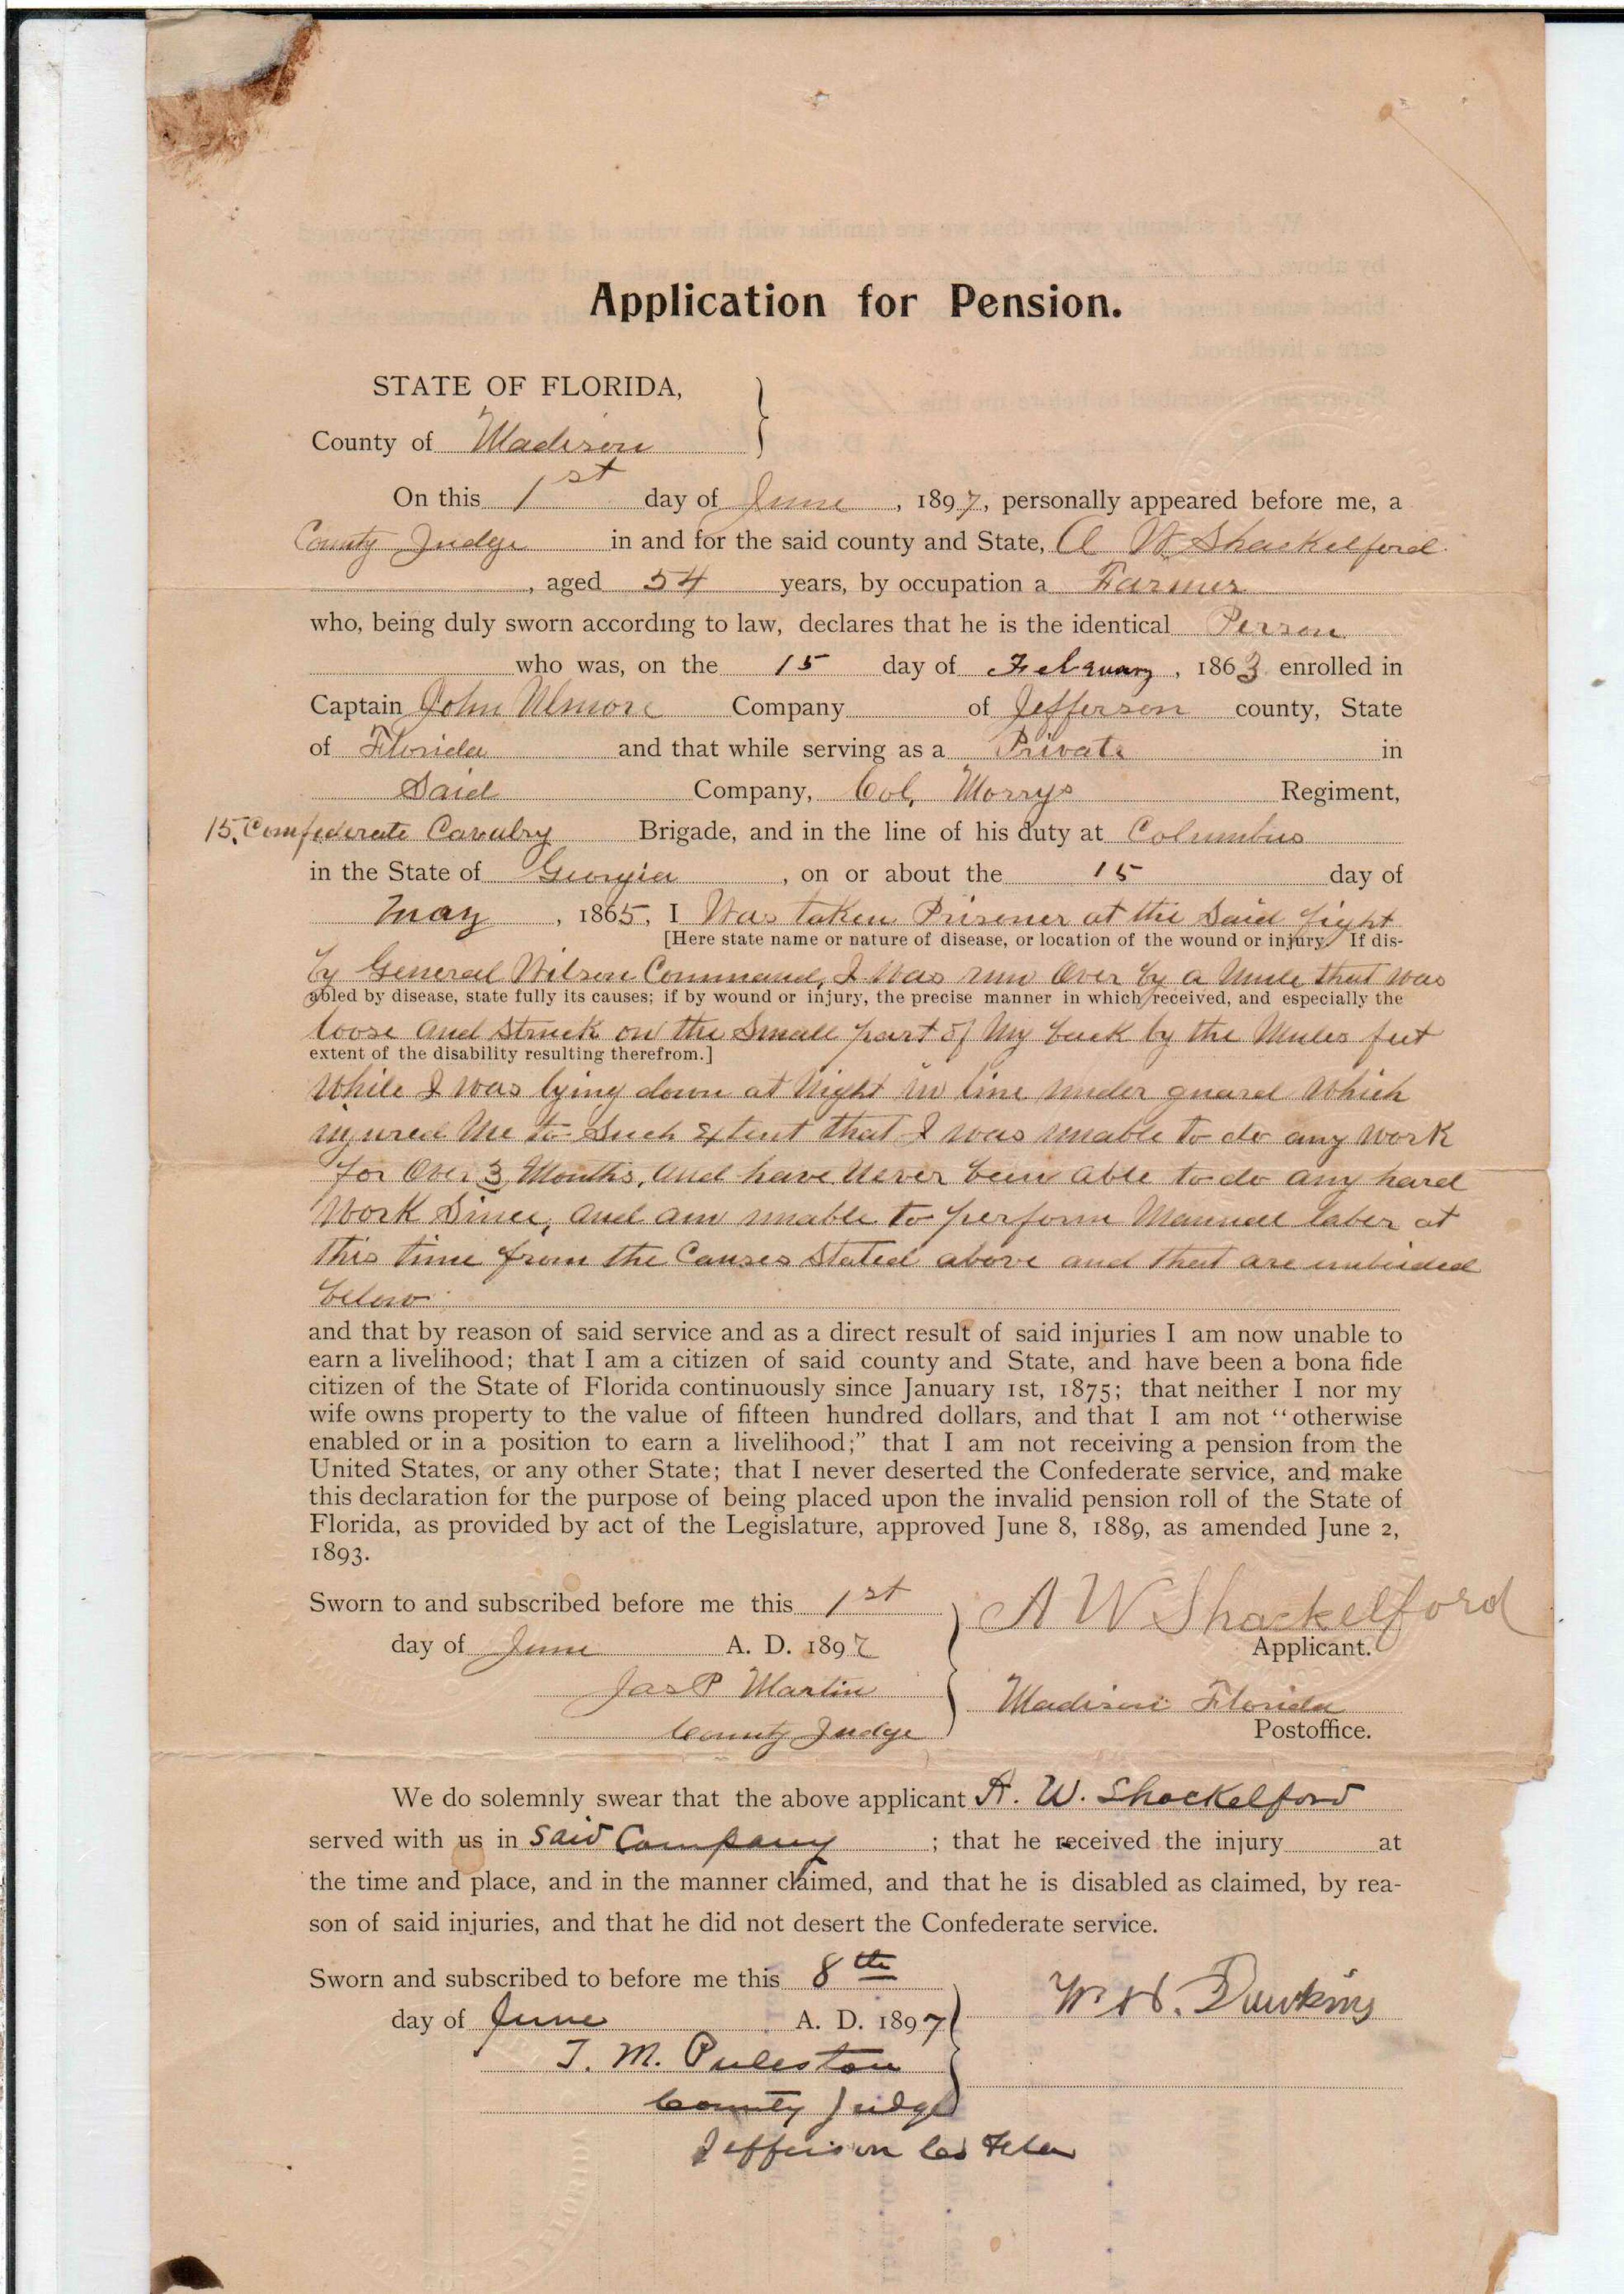 Application for Pension.
STATE OF FLORIDA,
County of Madison
On this 1st day of June, 1897, personally appeared before me, a
County Judge in and for the said county and State, A W Shackelford
, aged 54 years, by occupation a Farmer
who, being duly sworn according to law, declares that he is the identical Person
who was, on the 15 day of February, 1863 enrolled in
Captain John Ulmore Company of Jefferson county, State
of Florida and that while serving as a Private in
Said Company, Col, Morrys Regiment,
15, Comfederate Cavalry Brigade, and in the line of his duty at Columbus
in the State of Georgia, on or about the 15 day of
May, 1865, I Was taken Prisoner at the Said fight
[Here state name or nature of disease, or location of the wound or injury. If dis-
by General Wilson Command, I was run Over by a Mule that was
abled by disease, state fully its causes; if by wound or injury, the precise manner in which received, and especially the
loose and struck on the Small part of My back by the Mules feet
extent of the disability resulting therefrom.]
While I was lying down at Night in line under guard which
injured Me to Such Extent that I was unable to do any work
for Over 3 Months, and have Never been able to do any hard
Work Since, and am unable to perform Manuel laber at
this time from the Causes Stated above and that are
below
and that by reason of said service and as a direct result of said injuries I am now unable to
earn a livelihood; that I am a citizen of said county and State, and have been a bona fide
citizen of the State of Florida continuously since January 1st, 1875; that neither I nor my
wife owns property to the value of fifteen hundred dollars, and that I am not "otherwise
enabled or in a position to earn a livelihood;" that I am not receiving a pension from the
United States, or any other State; that I never deserted the Confederate service, and make
this declaration for the purpose of being placed upon the invalid pension roll of the State of
Florida, as provided by act of the Legislature, approved June 8, 1889, as amended June 2,
1893.
Sworn to and subscribed before me this 1st
day of June A. D. 1897
Jas P Martin
County Judge
A W Shackelford
Applicant.
Madison Florida
Postoffice.
We do solemnly swear that the above applicant A. W. Shackelford
served with us in Said Company; that he received the injury at
the time and place, and in the manner claimed, and that he is disabled as claimed, by rea-
son of said injuries, and that he did not desert the Confederate service.
Sworn and subscribed to before me this 8th
day of June A. D. 1897
T. M. Puleston
County Judge
Jefferson Co Fla
W. H. Dawkins